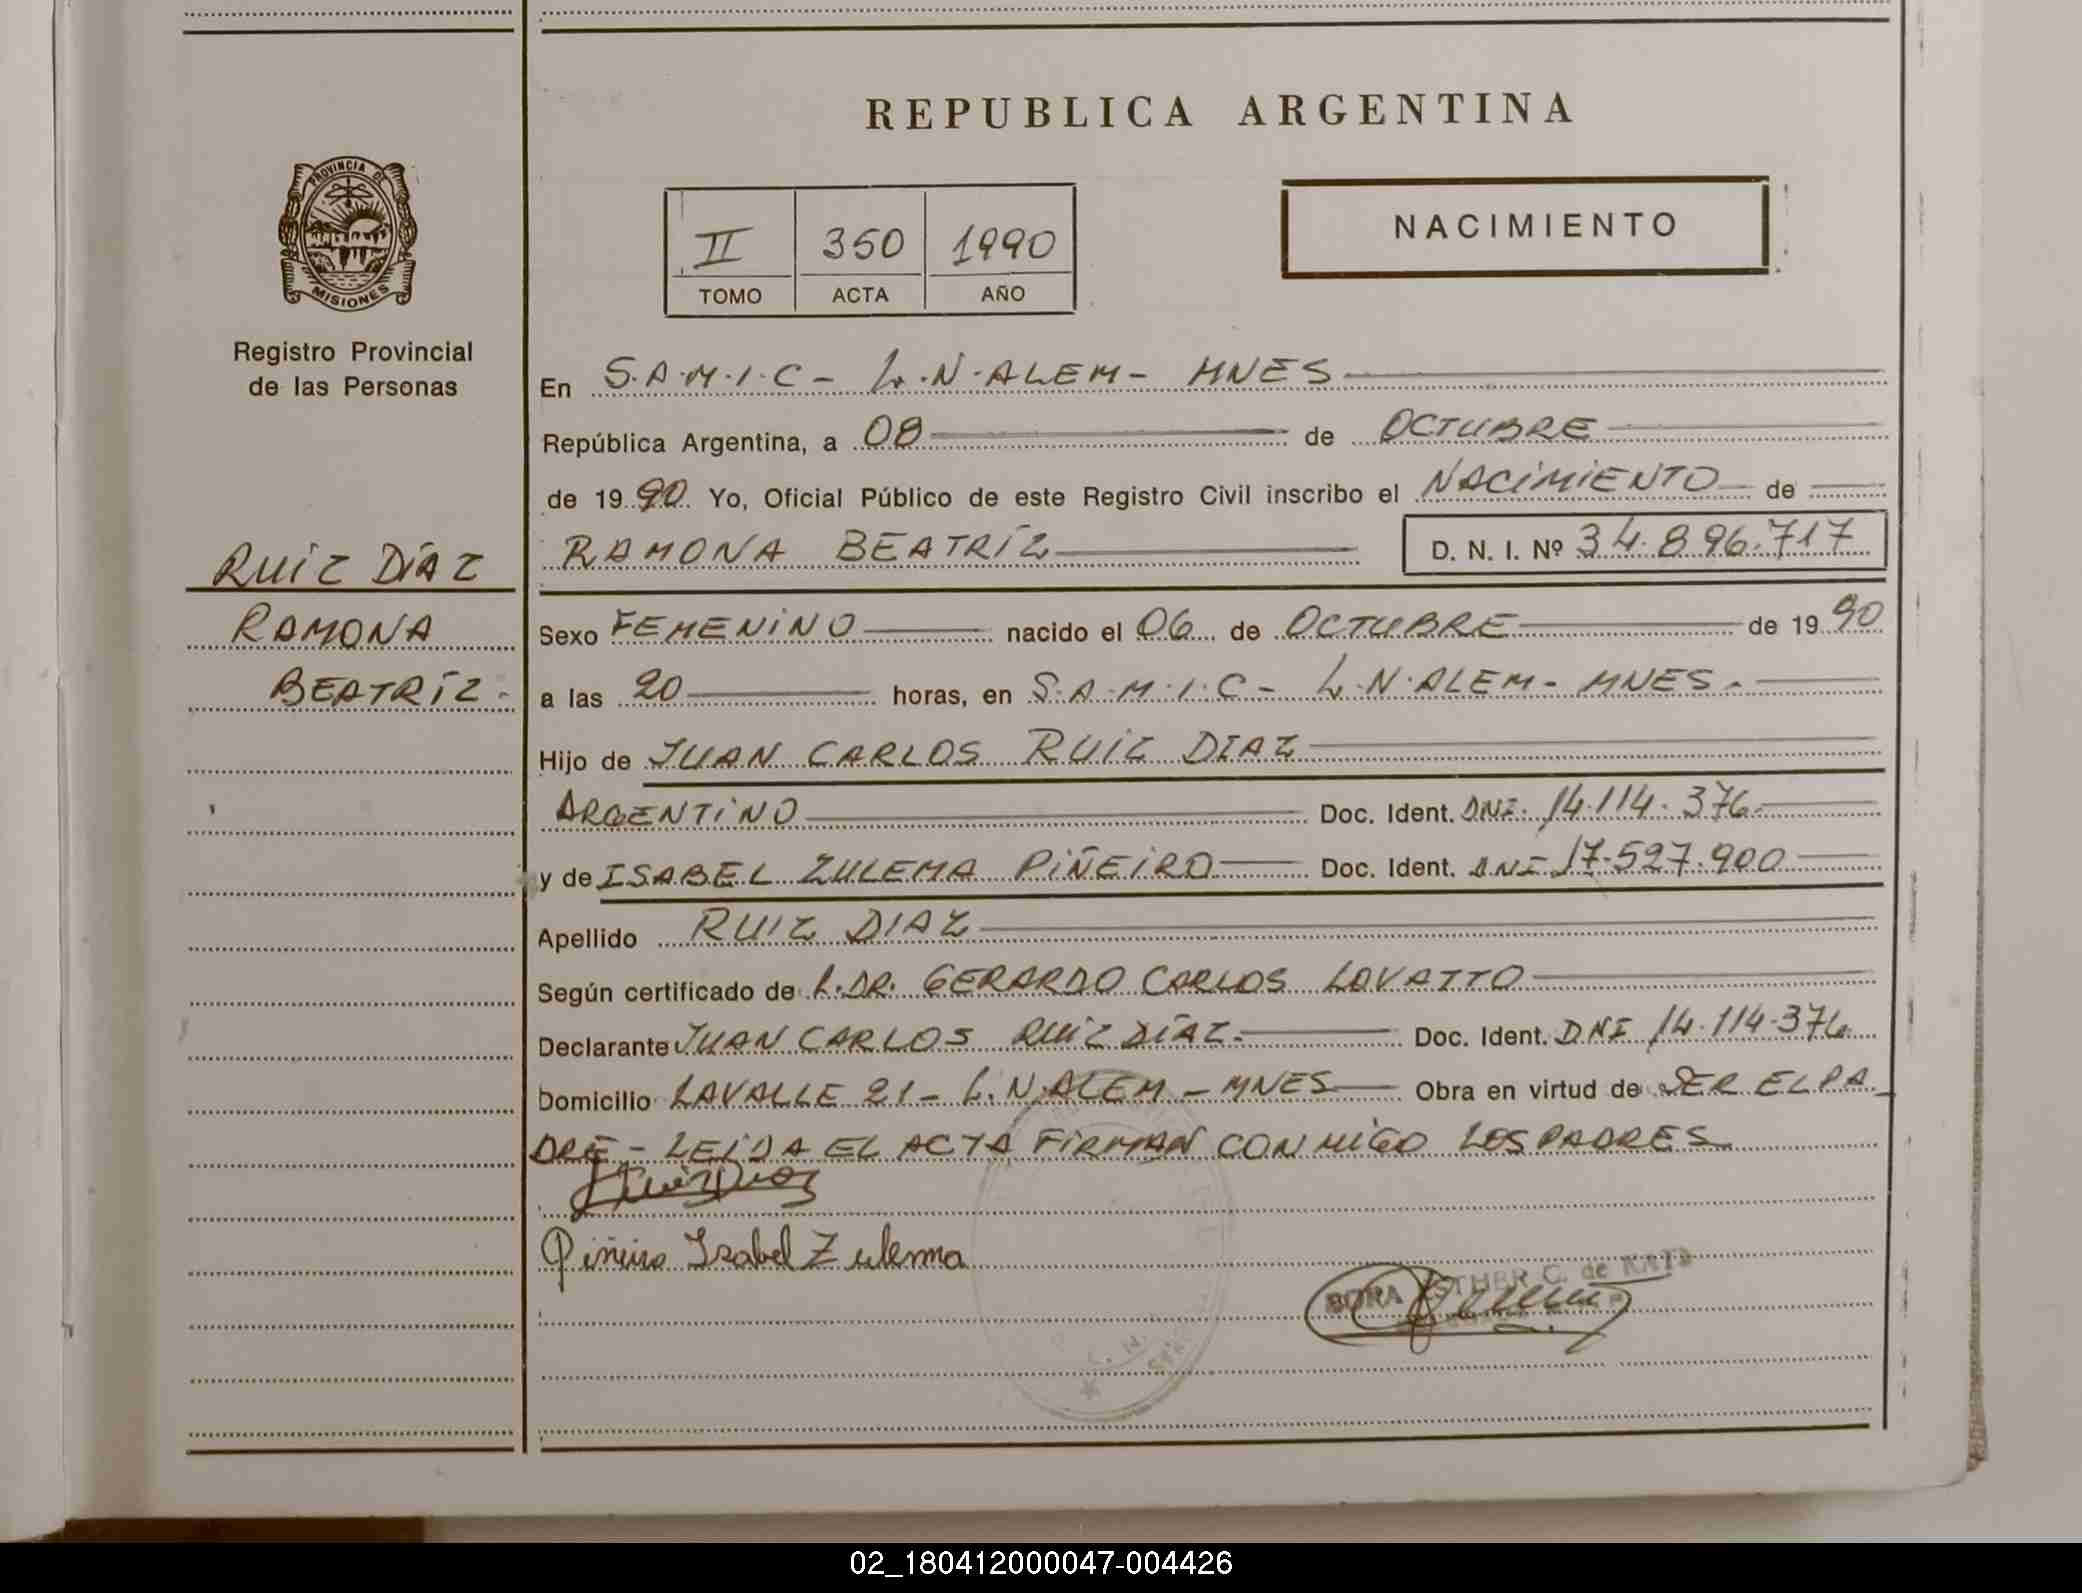 REPUBLICA ARGENTINA
PROVINCIA DE
MISIONES
Registro Provincial
de las Personas
II 350 1990
TOMO ACTA AÑO
NACIMIENTO
RUIZ DÍAZ
RAMONA
BEATRÍZ.
En S.A.M.I.C - L.N.ALEM - MNES
República Argentina, a 08 de OCTUBRE
de 1990 Yo, Oficial Público de este Registro Civil inscribo el NACIMIENTO de
RAMONA BEATRÍZ D. N. I. Nº 34.896.717
Sexo FEMENINO nacido el 06 de OCTUBRE de 1990
a las 20 horas, en S.A.M.I.C - L.N.ALEM - MNES.
Hijo de JUAN CARLOS RUIZ DIAZ
ARGENTINO Doc. Ident. DNI. 14.114.376
y de ISABEL ZULEMA PIÑEIRO Doc. Ident. DNI 17.527.900
Apellido RUIZ DIAZ
Según certificado de L.DR. GERARDO CARLOS LOVATTO
Declarante JUAN CARLOS RUIZ DÍAZ. Doc. Ident. DNI 14.114.376
Domicilio LAVALLE 21 - L.N.ALEM - MNES Obra en virtud de SER EL PA
DRE - LEIDA EL ACTA FIRMAN CONMIGO LOS PADRES
Ruiz Diaz
Piñeiro Isabel Zulema
ESTHER C. de
02_180412000047-004426